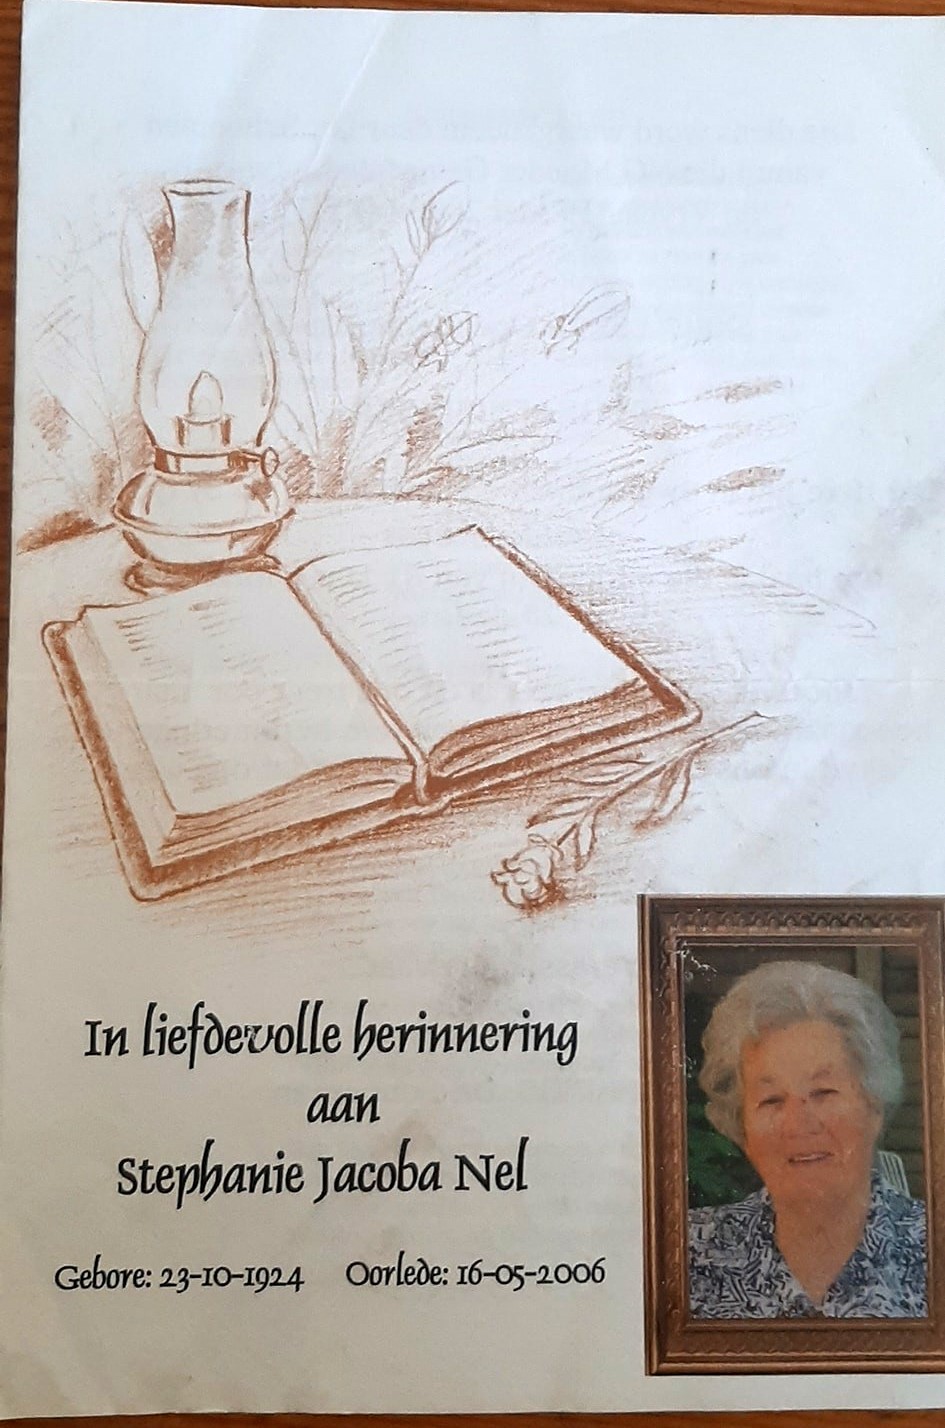 In liefdevolle herinnering
aan
Stephanie Jacoba Nel
Gebore: 23-10-1924 Oorlede: 16-05-2006